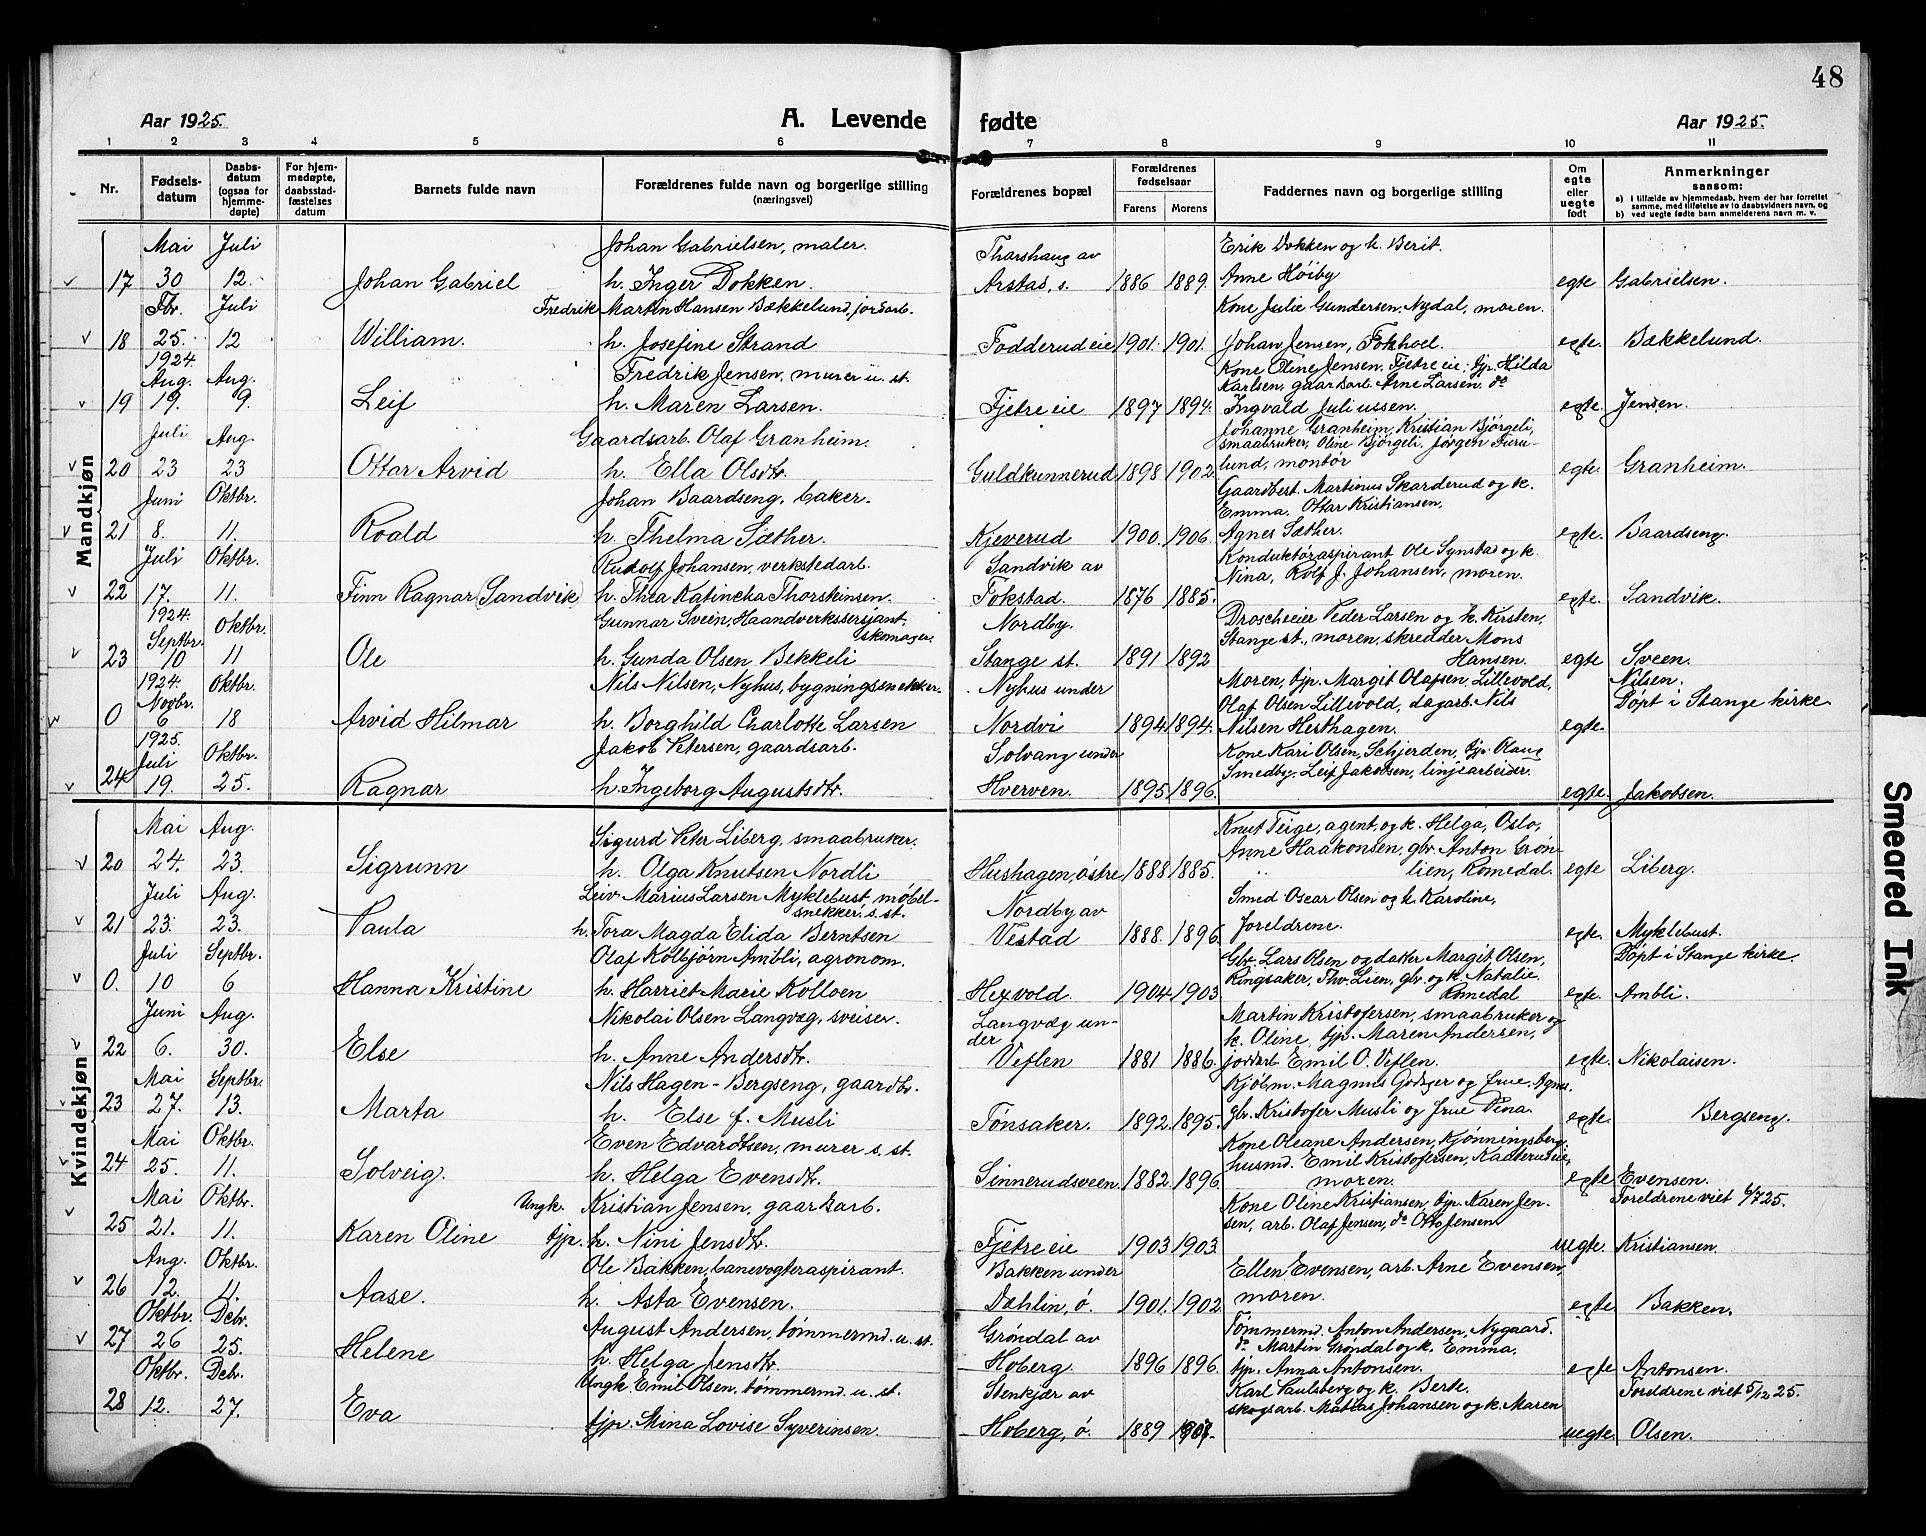 48
Aar 1925. A. Levende fødte Aar 1925.
1 2 3 4 5 6 7 8 9 10 11
Nr. Fødsels-datum Daabs-datum (ogsaa for hjemme-døpte) For hjem-medøpte, daabsstad-fæstelses datum Barnets fulde navn Forældrenes fulde navn og borgerlige stilling (næringsvei) Forældrenes bopæl Forældrenes fødselsaar Farens Morens Faddernes navn og borgerlige stilling Om egte eller uegte født Anmerkninger saasom:
a) i tilfælde av hjemmedaab, hvem der har forrettet samme, med tilføielse av to daabsvidners navn, og
b) ved uegte fødte barn anmelderens navn m. v.
Mandkjøn
Mai Juli Johan Gabrielsen, maler. Thorshaug av Erik Dokken og k. Berit.
17 30 12. Johan Gabriel h. Inger Dokken. Arstad, s. 1886 1889. Anne Höiby egte Gabrielsen.
Fbr. Juli Fredrik Martin Hansen Bækkelund, jordarb. Kone Julie Gundersen, Nydal, moren.
18 25. 12 William. h. Josefine Strand Fodderud eie 1901. 1901. Johan Jensen, Fokhoel. egte. Bækkelund.
1924 Aug. Aug. Fredrik Jensen, murer u. st. Kone Oline Jensen, Fjetre eie, tjp. Hilda
Karlsen, gaardarb. Arne Larsen, do
19 19. 9. Leif h. Maren Larsen. Fjetre eie 1897 1894. Ingvald Juliussen. egte. Jensen.
Juli Aug. Gaardsarb. Olaf Granheim. Johanne Granheim, Kristian Björgeli,
smaabruker, Oline Björgeli, Jörgen Furu-
20 23 23 Ottar Arvid h. Ella Olsdtr. Guldkunnerud 1898 1902. lund, montör egte. Granheim.
Juni Oktbr. Johan Baardseng, baker. Gaardbest. Martinus Skarderud og k.
Emma, Ottar Kristiansen,
21 8. 11. Roald h. Thelma Sæther. Kjeverud 1900. 1906. Agnes Sæther. egte. Baardseng.
Juli Oktbr. Rudolf Johansen, verkstedarb. Sandvik av Konduktöraspirant Ole Synstad og k.
Nina, Rolf J. Johansen, moren.
22 17. 11. Finn Ragnar (Sandvik) h. Thea Katincka Thorstensen. Fokstad. 1876 1885. egte. Sandvik.
1924. Septbr. Oktbr. Gunnar Sveen, Haandverkssersjant, skomager. Nordby. Droscheeier Peder Larsen og k. Kirsten,
Stange st., moren, skredder Mons
23 10 11 Ole h. Gunda Olsen Bekkeli Stange st. 1891 1892 Hansen. egte Sveen.
1924. Novbr. Oktbr. Nils Nilsen, Nyhus, bygningssnekker. Nyhus under Moren, tjp. Margit Olafsen, Lillevold, Nilsen.
Olaf Olsen Lillevold, dagarb. Nils Döpt i Stange kirke
0 6 18 Arvid Hilmar h. Borghild Charlotte Larsen Nordvi 1894 1894. Nilsen Hesthagen. egte.
1925. Juli Oktbr. Jakob Petersen, gaardsarb. Solvang under Kone Kari Olsen, Schjerden, tjp. Olaug
Smedby, Leif Jakobsen, linjearbeider.
24 19. 25. Ragnar h. Ingeborg Augustsdtr. Hverven. 1895 1896. egte. Jakobsen.
Kvindekjøn
Mai Aug. Sigurd Peter Liberg, smaabruker. Knut Teige, agent, og k. Helga, Oslo,
Anne Haakonsen, gbr. Anton Grön-
20 24. 23. Sigrunn h. Olga Knutsen Nordli Hushagen, östre 1888 1885. lien, Romedal. egte Liberg.
Juli Aug. Leiv Marius Larsen Myklebust, möbel-snekker, s. st. Nordby av Smed Oscar Olsen og k. Karoline,
21 23. 23. Paula h. Tora Magda Elida Berntsen Vestad 1888. 1896. foreldrene. egte. Myklebust.
Juli Septbr. Olaf Kolbjörn Ambli, agronom. Gbr. Lars Olsen og datter Margit Olsen, Döpt i Stange kirke
Ringsaker, Thv. Lien, gbr. og k. Natalie
0. 10 6 Hanna Kristine h. Harriet Marie Kolloen Hexvold 1904. 1903 Romedal egte. Ambli.
Juni Aug. Nikolai Olsen Langvæg, sveiser. Langvæg un- Martin Kristofersen, smaabruker og
der k. Oline, tjp. Maren Andersen,
22 6. 30. Else h. Anne Andersdtr. Veflen 1881 1886. jordarb. Emil O. Veflen. egte. Nikolaisen.
Mai Septbr. Nils Hagen-Bergseng, gaardbr. Kjöbm. Magnus Godager og frue, Agnes,
23 27. 13. Marta h. Else f. Musli Tönsaker. 1892 1895. gbr. Kristofer Musli og frue Dina. egte. Bergseng.
Mai Oktbr. Even Edvardtsen, murer s. st. Kone Oleane Andersen, Kjönningsberg,
husmd. Emil Kristofersen, Kaaterudeie,
24 25. 11. Solveig. h. Helga Evensdtr. Sinnerudsveen. 1882. 1896. moren. egte. Evensen.
Mai Oktbr. Ungk. Kristian Jensen, gaardarb. Kone Oline Kristiansen, tjp. Karen Jen- Foreldrene viet 4/7 25.
sen, arb. Olaf Jensen, do Otto Jensen
25 21. 11. Karen Oline tjp. h. Nini Jensdtr. Fjetre eie 1903 1903. uegte. Kristiansen
Aug. Oktbr. Ole Bakken, banevogteraspirant. Bakken under Ellen Evensen, arb. Arne Evensen,
26 12. 11. Aase. h. Asta Evensen. Dæhlin, ö. 1901. 1902. moren. egte. Bakken.
Oktbr. Debr. August Andersen, tömmermd. u. st. Gröndal av Tömmermd. Anton Andersen, Nygaard.
do Martin Gröndal og k. Emma,
27 26 25. Helene h. Helga Jensdtr. Hoberg. 1896 1896. tjp. Anna Antonsen. egte Antonsen.
Oktbr. Debr. Ungk. Emil Olsen, tömmermd. u. st. Stenkjær av Karl Paulsberg og k. Berte. Foreldrene viet 5/12 25.
skogsarb. Mathias Johansen og k. Maren
28 12. 27. Eva tjp. Mina Lovise Syverinsen Hoberg, ö. 1889 uegte. Olsen.
Smeared Ink